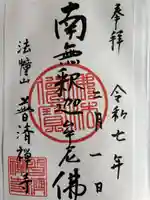 奉拝
令和七年
二月一日
南無釈迦牟尼佛
法幢山
普済禅寺